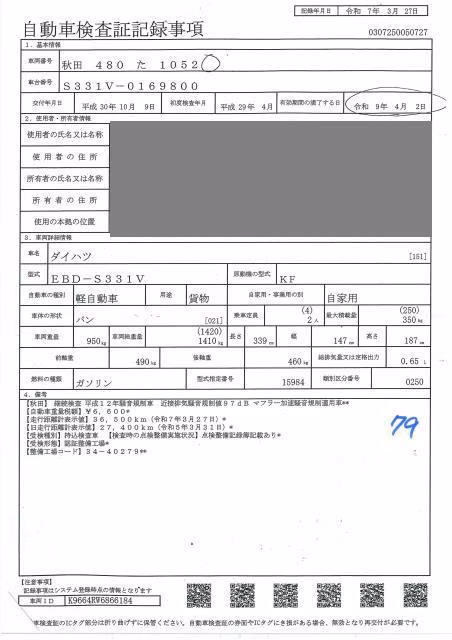 記録年月日 令和 7年 3月 27日
自動車検査証記録事項
0307250050727
1．基本情報
車両番号 秋田 480 た 1052
車台番号 S331V-0169800
交付年月日 平成 30年 10月 9日 初度検査年月 平成 29年 4月 有効期間の満了する日 令和 9年 4月 2日
2．使用者・所有者情報
使用者の氏名又は名称
使用者の住所
所有者の氏名又は名称
所有者の住所
使用の本拠の位置
3．車両詳細情報
車名 ダイハツ [151]
型式 EBD-S331V 原動機の型式 KF
自動車の種別 軽自動車 用途 貨物 自家用・事業用の別 自家用
車体の形状 バン [021] 乗車定員 (4) 2人 最大積載量 (250) 350kg
車両重量 950kg 車両総重量 (1420) 1410kg 長さ 339cm 幅 147cm 高さ 187cm
前軸重 490kg 後軸重 460kg 総排気量又は定格出力 0.65 L
燃料の種類 ガソリン 型式指定番号 15984 類別区分番号 0250
4．備考
【秋田】 継続検査 平成12年騒音規制車 近接排気騒音規制値97dB マフラー加速騒音規制適用車**
【自動車重量税額】¥6,600*
【走行距離計表示値】36,500km（令和7年3月27日）*
【旧走行距離計表示値】27,400km（令和5年3月31日）*
【受検種別】持込検査車 【検査時の点検整備実施状況】点検整備記録簿記載あり*
【受検形態】認証整備工場*
【整備工場コード】34-40279**
79
【注意事項】
記録事項はシステム登録時点の情報となります
車両ID K9664RW6866184
車検査証のICタグ部分は折り曲げずに保管ください。自動車検査証の券面やICタグにき損がある場合、無効となり再交付が必要です。